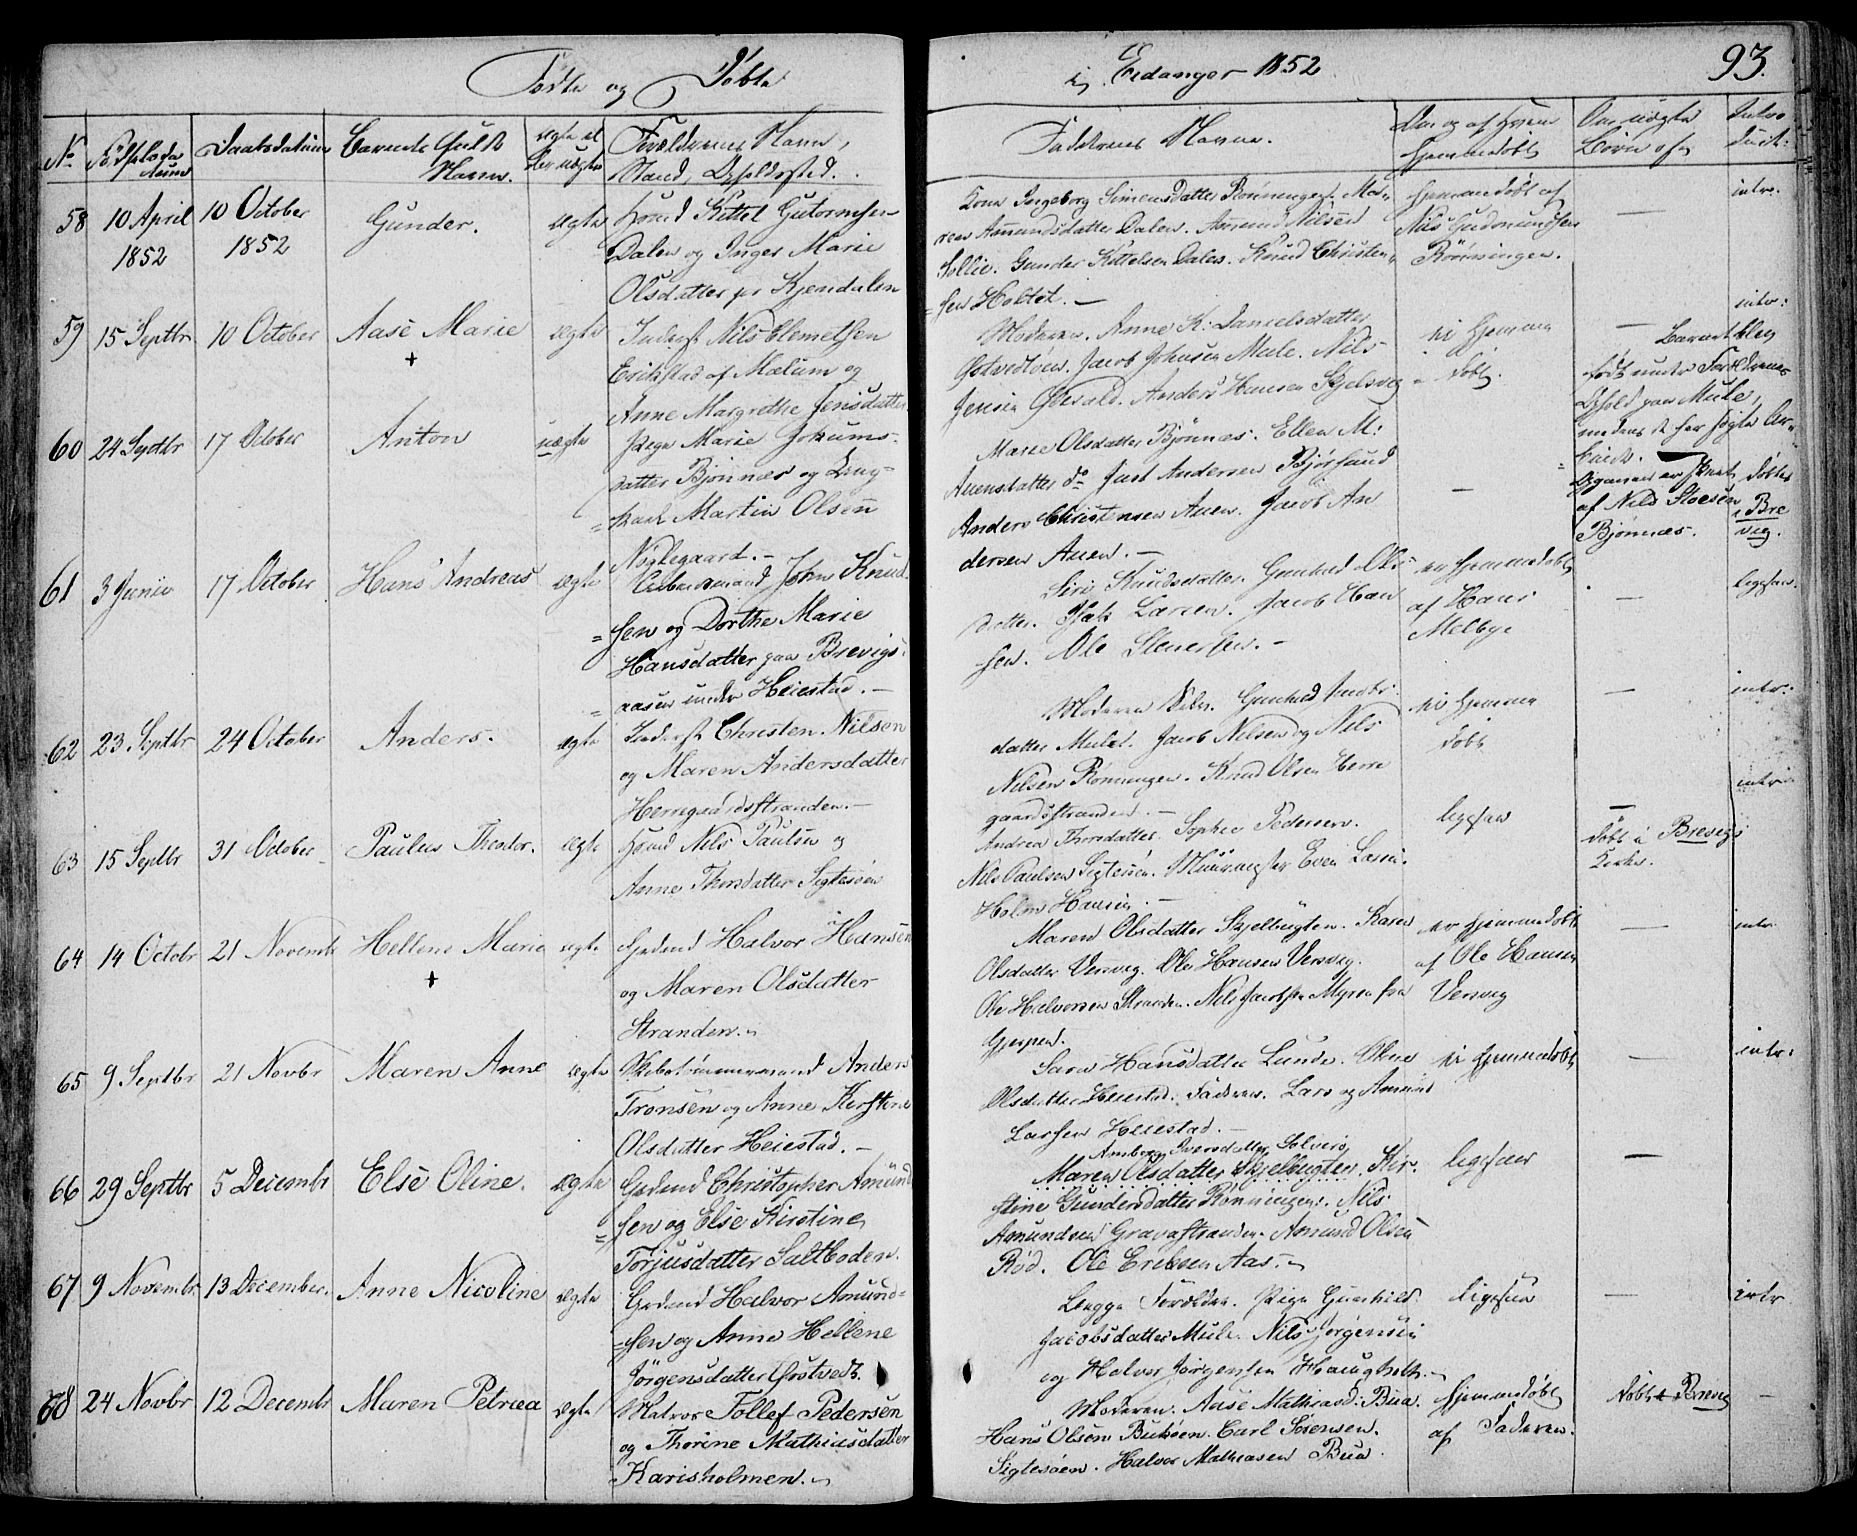 Fødte og Døbte
i Eidanger 1852
93.
No
Daabsdatum
Barnets fulde Navn.
Forældrenes Navn, Stand, Opholdssted.
Faddernes Navne.
58 10 April 1852
10 October 1852
Gunder.
ægte
Kittel Gutormsen
Dalen og Inger Marie
Olsdatter Kjendalen
Kone Ingeborg Simensdatter Rønningen. Ma-
ren Amundsdatter Dalen. Amund Nilsen
Sollie. Gunder Kittelsen Dalen. Knud Christen-
sen Holtet. —
hjemmedøbt af
Nils Gudmundsen
Rønningen.
—
intr.
59 15 Septbr
10 October
Aase Marie
+
ægte
Inderst Nils Clemetsen
Erikstad af Mælum og
Anne Margrethe Jensdatter
Moderen. Anne K. Danielsdatter
Østvedtøen. Jacob Johnsen Mule. Nils
Jensen Anders Hansen Skjelsvig
ei hjemme-
døbt.
—
Barnet blev
født under Forældrenes
Ophold paa Mule,
medens de her søgte Ar-
beide.
intr:
60 24 Septbr
17 October
Anton
uægte
Pige Marie Jokums-
datter Bjønnes og Ung-
karl Martin Olsen
Nøklegaard. -
Maren Olsdatter Bjønnes. Ellen M:
Auensdatter do Andersen Bjørsund
Anders Christensen Auen. Jacob An
dersen Auen. —
—
Opgaven er
af Nils Stoesen
Bjønnes.
døbt
i Bre
vig.
61 3 Junii
17 October
Hans Andreas
ægte
John Knud-
sen og Dorthe Marie
Hansdatter paa Brevigs-
aasen under Heiestad. —
Siri Knudsdatter. Gunhild Ols-
datter. Isak Larsen. Jacob Han
sen. Ole Stenersen. -
er hjemmedøbt
af Hans
Melbye
—
62 23 Septbr
24 October
Anders.
ægte
Inderst Christen Nilsen
og Maren Andersdatter
Herregaardsstranden. —
Moderen Gunhild
datter Mule. Jacob Nilsen og Nils
Nilsen Rønningen. Knud Olsen Herre
gaardsstranden. —
ei hjemme
døbt
—
intr:
63 15 Septbr
31 October
Paulus Theodor.
ægte
Nils Paulsen og
Anne Thorsdatter Sigtesøen
Andrea Thorsdatter. Sophie Pedersen.
Nils Paulsen Sigtesøen. Muurmester Even Larsen.
Holm Hansen. —
ligesaa
—
døbt i Brevigs
Kirke.
intr:
64 14 Octobr
21 Novembr
Hellene Marie
+
ægte
Gaardmd Halvor Hansen
og Maren Olsdatter
Stranden.
Maren Olsdatter Skjelbugten. Karen
Olsdatter Versvig. Ole Hansen Versvig.
Ole Halvorsen Stranden. Nils Jacobsen Myren fra
Gjerpen.
er hjemmedøbt
af Ole Hansen
Versvig
—
intr.
65 9 Septbr
21 Novbr
Maren Anne
ægte
Skibstømmermand Anders
Tronsen og Anne Kirstine
Olsdatter Heiestad. —
Sara Hansdatter Lunde. Anne
Olsdatter Heiestad. Faderen. Lars og Amund
Larsen Heiestad. —
ei hjemmedøbt
—
intr:
66 29 Septbr
5 Decembr
Else Oline.
ægte
Gaardmd Christopher Amund
sen og Else Kirstine
Torjusdatter Saltboden.
Amborg Iversdatter Solverø
Maren Olsdatter Skjelbugten. Kir-
stine Gundersdatter Rønningen. Nils
Amundsen Gravastranden. Amund Olsen
Rød. Ole Eriksen Aas.
ligesaa
—
67 9 Novembr
13 December.
Anne Nicoline
ægte
Gaardmd Halvor Amund-
sen og Anne Hellene
Jørgensdatter Østvedt.
Begge Forældre. Pige Gunhild
Jacobsdatter Mule. Nils Jørgensen
og Halvor Jørgensen Haugholt.
ligesaa
—
intr
68 24 Novbr
12 Decembr
Maren Petrea
ægte
Matros Tollef Pedersen
og Thorine Mathiasdatter
Karisholmen.
Moderen. Aase Mathiasd: Bua.
Hans Olsen Buksøen. Carl Sørensen.
Sigtesøen. Halvor Mathiasen Bua.
hjemmedøbt
af Faderen.
døbt i Brevig
—